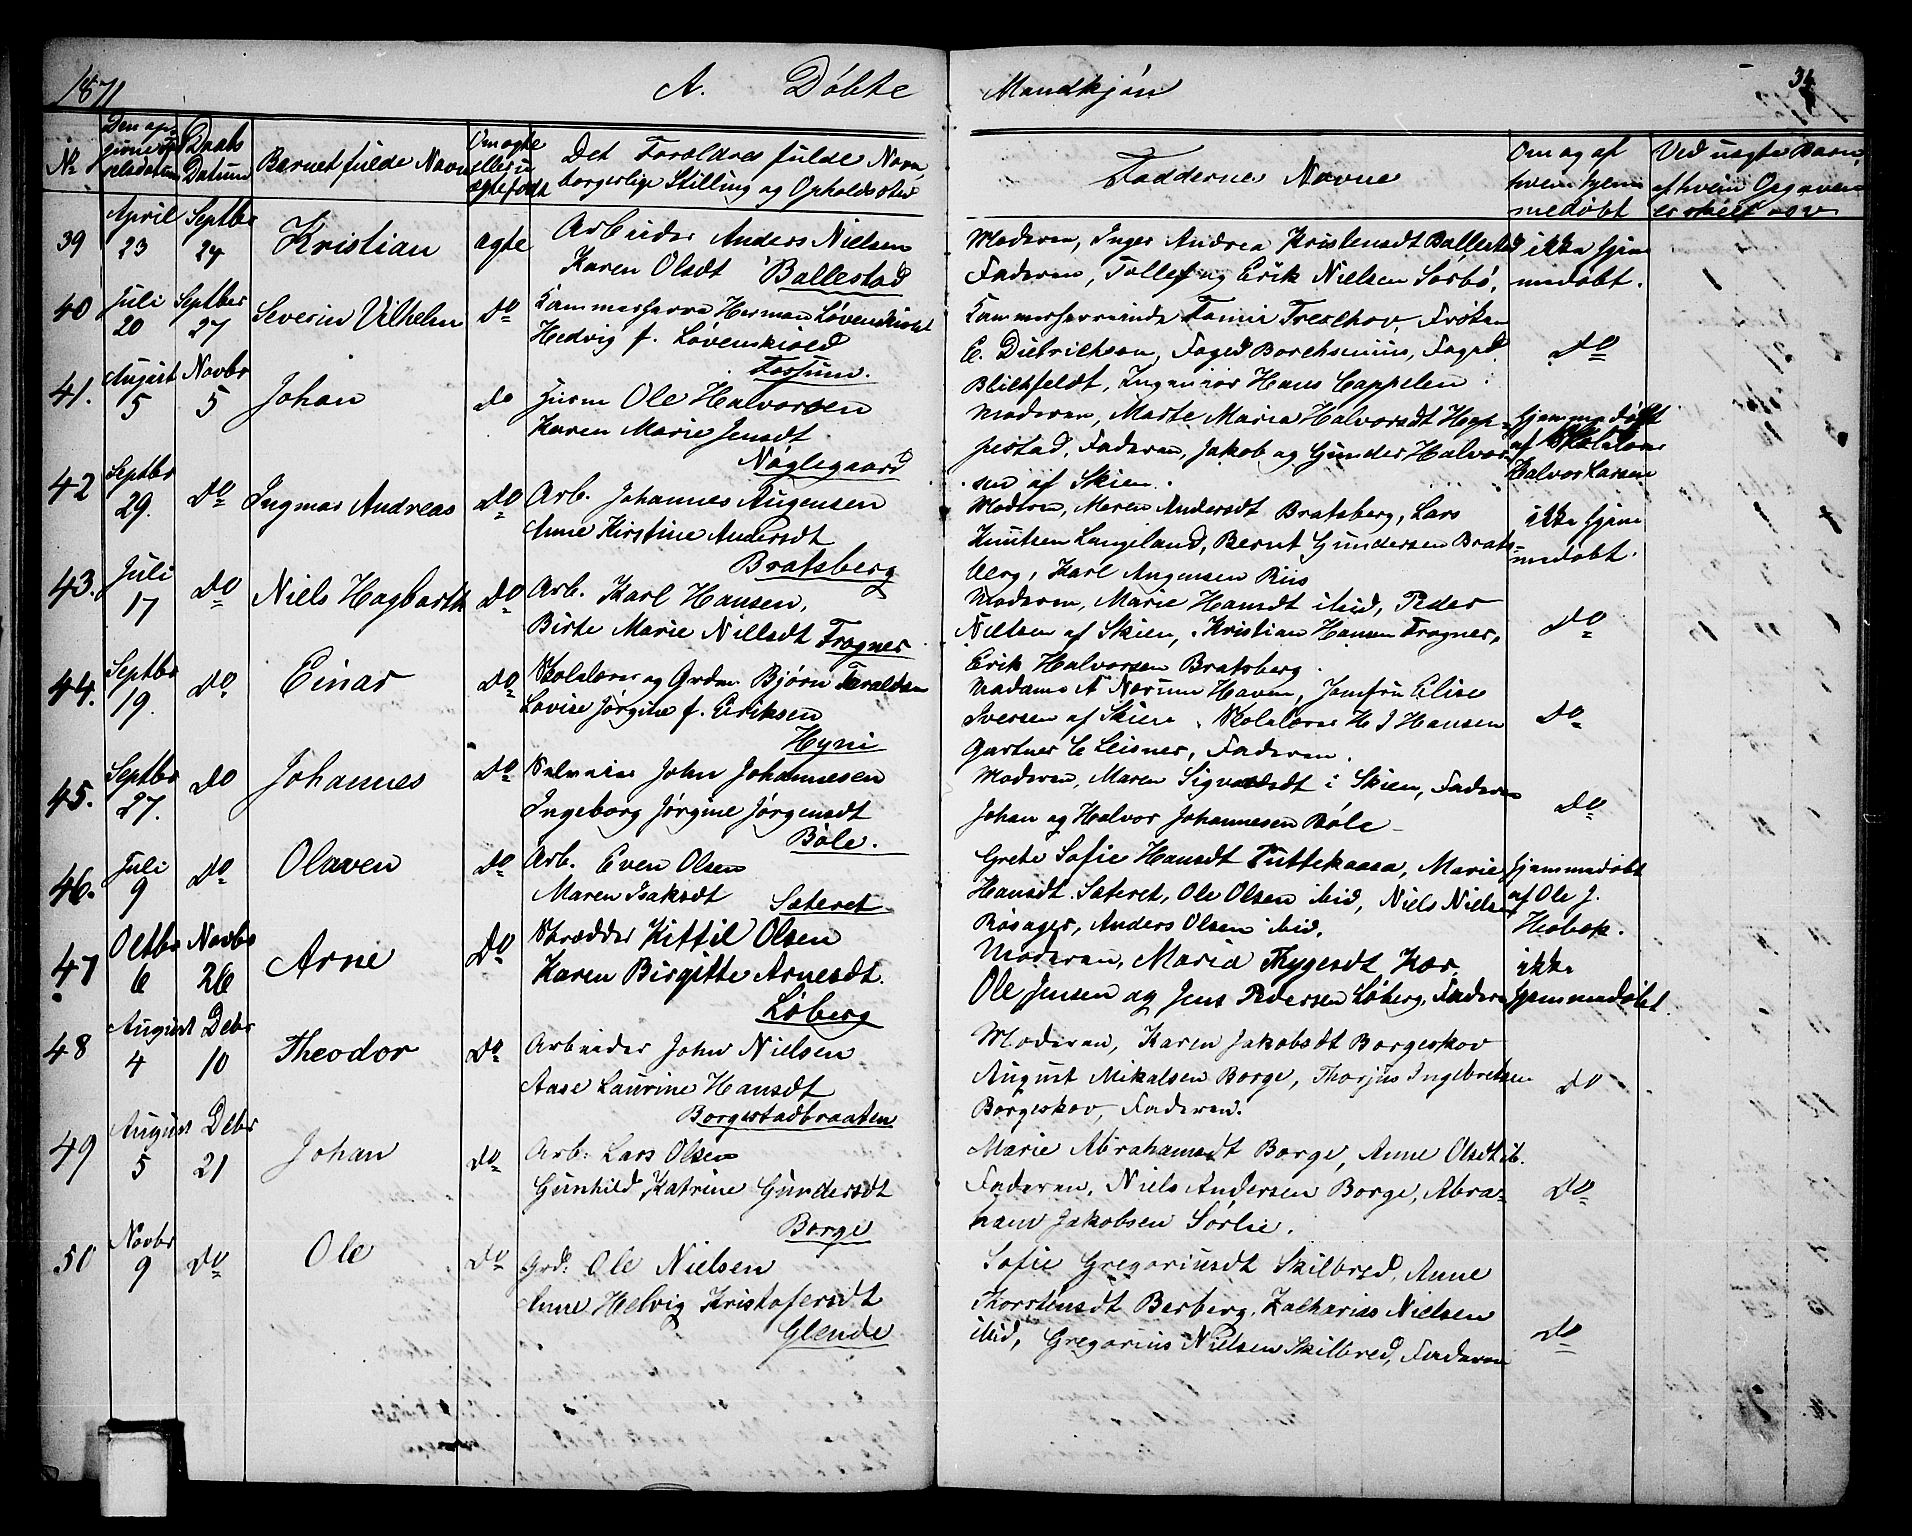 1871
A. Döbte
Mandkjön
34
No
Den op-
Daabs
Datum
Barnet fulde Navn
Om ægte
eller u-
ægte født
Det Forældres fulde Navn,
borgerlige Stilling og Opholdssted
Faddernes Navne
Om og af
hvem hjem
medöbt
Ved uægte Barn,
af hvem Opgaven
er skeet
39 April 23 Septbr 24 Kristian ægte
Arbeider Anders Nielsen
Karen Olsdt Ballestad
Moderen, Inger Andrea Kristensdt Ballestad
Faderen, Tollef og Erik Nielsen Sorbö,
ikke hjem
medöbt.
40 Juli 20 Septber 27 Severin Vilhelm Do
Kammerherre Herman Løvenskiold
Hedvig f. Løvenskiold
Fossum.
Kammerherreinde Fanni Treschov, Frøken
E. Dietrichson, Foged Borchsenius, Foged
Blichfeldt, Ingeniør Hans Cappelen.
Do
41. August 5 Novbr 5 Johan do
Husm Ole Halvorsen
Karen Marie Jensdt
Nøglegaard
Moderen, Marte Maria Halvorsdt Hop-
pestad, Faderen, Jakob og Gunder Halvor-
sen af Skien.
hjemmedøbt
af Skolelærer
Halvor Larsen
42 Septbr 29. Do Ingmar Andreas Do
Arb. Johannes Augensen
Anne Kirstine Andersdt
Bratsberg
Modren, Maren Andersdt Bratsberg, Lars
Knutsen Langeland, Bernt Gundersen Brats-
berg, Karl Augensen Riis
ikke hjem
medöbt.
43. Juli 17 Do Niels Hagbarth Do
Arb. Karl Hansen,
Birte Marie Nillsdt Frogner
Moderen, Marie Hansdt ibid, Peder
Nielsen af Skien, Kristian Hansen Frogner,
Erik Halvorsen Bratsberg.
Do
44. Septbr 19. Do Einar Do
Skolelærer og Grdm. Bjørn Taraldsen
Lovise Jørgine f. Eriksen
Hyni
Madams A Norum Haven, Jomfru Elise
Iversen af Skien, Skolelærer H J Hansen
Gartner C Leisner, Faderen.
Do
45. Septbr 27. Do Johannes Do
Selveier John Johannesen
Ingeborg Jørgine Jørgensdt
Böle.
Moderen, Maren Sigvardsdt i Skien, Faderen
Johan og Halvor Johannesen Böle
Do
46. Juli 9 Do Olaven Do
Arb. Even Olsen
Maren Isaksdt Sæteret
Grete Sofie Hansdt Tuftekaasa, Marie
Hansdt Sæteret, Ole Olsen ibid, Niels Nielsen
Røsager, Anders Olsen ibid.
hjemmedöbt
af Ole J.
47 Octbr 6 Novbr 26 Arne Do
Skrædder Kittil Olsen
Karen Birgitte Arnesdt.
Löberg
Moderen, Maria Thygesdt Kær
Ole Jensen og Jens Pedersen Löberg, Faderen
ikke
hjemmedöbt.
48 August 4 Debr 10 Theodor Do
Arbeider John Nielsen
Aase Laurine Hansdt
Borgestadbraaten
Moderen, Karen Jakobsdt Borgeskov
August Mikalsen Borge, Thorjus Ingebretsen
Borgeskov, Faderen.
Do
49 August 5 Debr 21 Johan Do
Arb. Lars Olsen
Gunhild Katrine Gundersdt
Borge
Marie Abrahamsdt Borge, Anne Olsdt ib.
Faderen, Niels Andersen Borge, Abra-
ham Jakobsen Sörlie.
Do
50 Novbr 9 Do Ole Do
Grd: Ole Nielsen
Anne Helvig Kristofersdt
Glende
Sofie Gregoriusdt Skilbred, Anne
Thorstensdt Berberg, Zacharias Nielsen
ibid, Gregorius Nielsen Skilbred, Faderen
Do